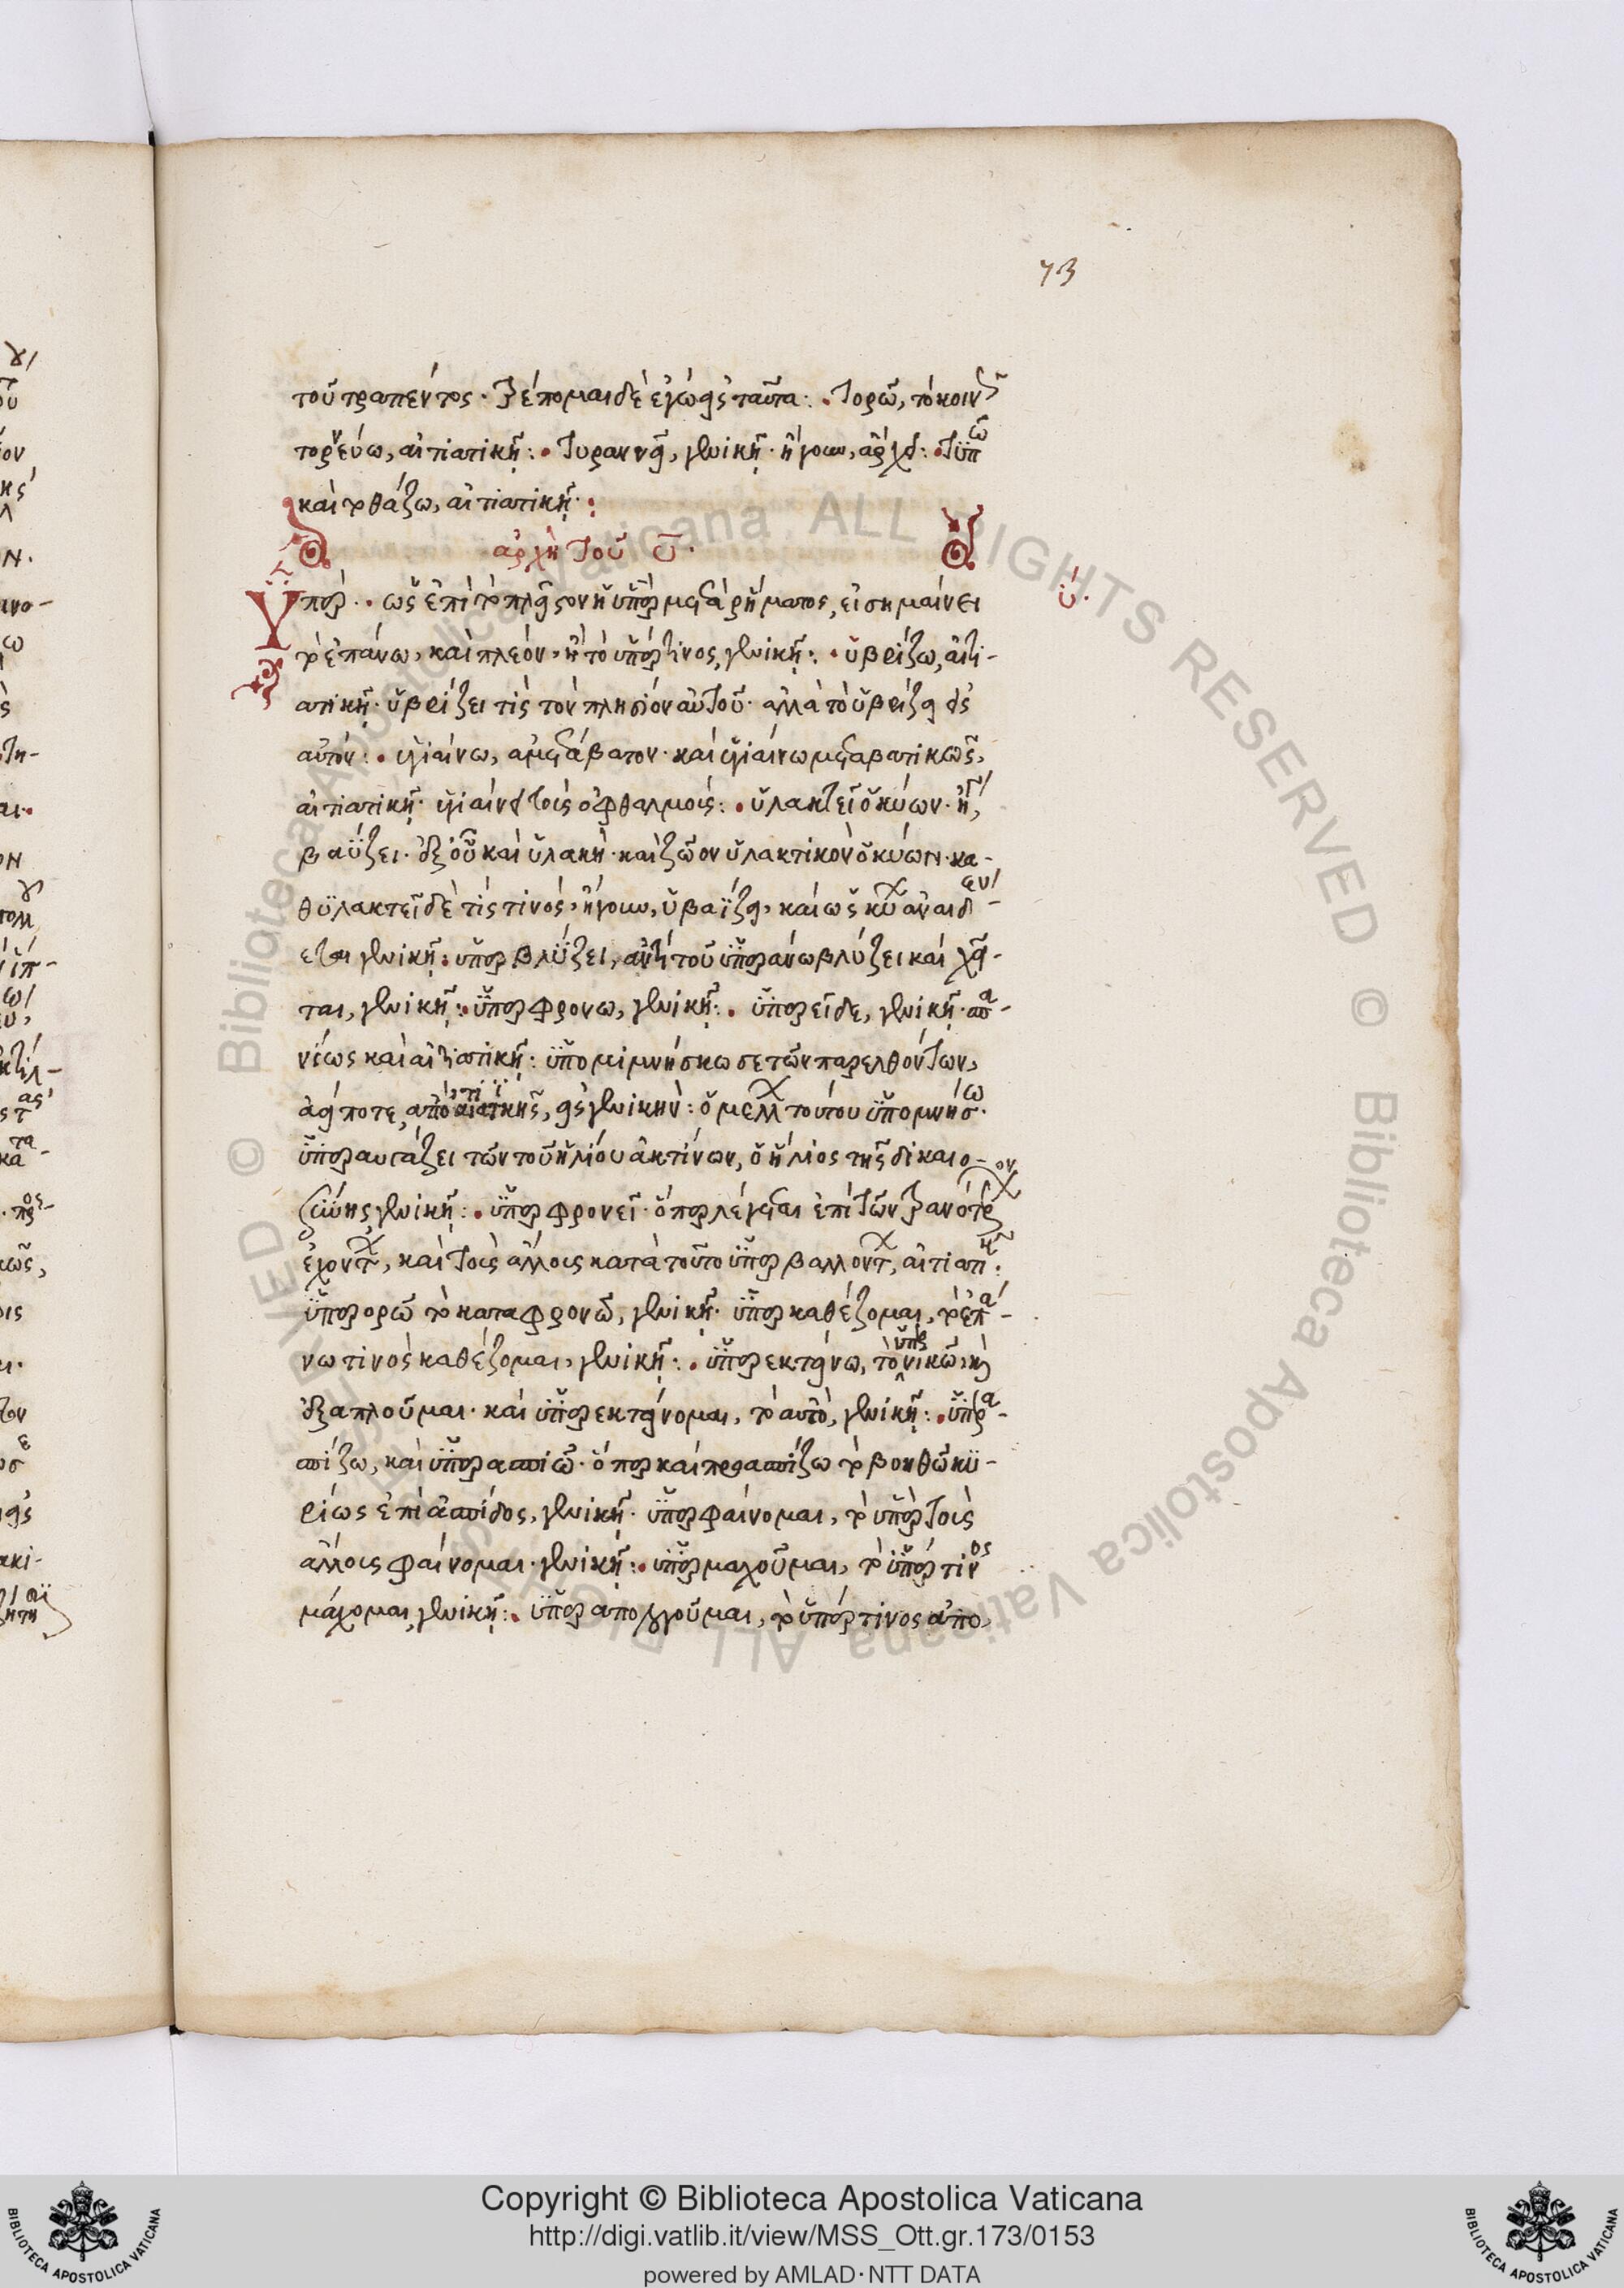 73
τοῦ τραπέντος· τρέπομαι δὲ ἐγὼ εἰς ταῦτα:. τορῶ, τὸ κοινῶς
τορνεύω, αἰτιατικῇ:. τυραννεῖ, γενικῇ· ἤγουν, ἄρχει:. τύπτω
καὶ τὸ θάζω, αἰτιατικῇ:
ἀρχὴ τοῦ υ.
ὑ.
Ὑπὲρ. ὡς ἐπὶ τὸ πλεῖστον ἢ ὑπὲρ μετὰ ῥήματος, εἰ σημαίνει
τὸ ἐπάνω, καὶ πλέον, ἢ τὸ ὑπέρ τινος, γενικῇ:. ὑβρίζω, αἰτι-
ατικῇ. ὑβρίζει τὶς τὸν πλησίον αὐτοῦ· ἀλλὰ τὸ ὑβρίζει εἰς
αὐτόν:. ὑγιαίνω, ἀμετάβατον· καὶ ὑγιαίνω μεταβατικῶς,
αἰτιατικῇ· ὑγιαίνει τοῖς ὀφθαλμοῖς:. ὑλακτεῖ ὁ κύων· ἤγουν,
βαΰζει. ἐξ οὗ καὶ ὑλακή· καὶ ζῶον ὑλακτικὸν ὁ κύων. κα-
θυλακτεῖ δὲ τίς τινός, ἤγουν, ὑβαΐζει, καὶ ὡς κύων ἀναιδεύ-
εται γενικῇ:. ὑπερβλύζει, ἀντὶ τοῦ ὑπεράνω βλύζει καὶ χεῖ-
ται, γενικῇ:. ὑπερφρονῶ, γενικῇ:. ὑπερεῖδε, γενικῇ· σπα-
νίως καὶ αἰτιατικῇ: ὑπομιμνήσκω σε τῶν παρελθόντων,
ἀεί ποτε, ἀπὸ αἰτιατικῆς, εἰς γενικήν: ὁ μέλλων τούτου ὑπομνήσω.
ὑπεραυγάζει τῶν τοῦ ἡλίου ἀκτίνων, ὁ ἥλιος τῆς δικαιο-
σύνης γενικῇ:. ὑπερφρονεῖ· ὅπερ λέγεται ἐπὶ τῶν πιθανότερον
ἐχόντων, καὶ τοῖς ἄλλοις κατὰ τοῦτο ὑπερβαλλόντων, αἰτιατικῇ:
ὑπερορῶ τὸ καταφρονῶ, γενικῇ. ὑπερκαθέζομαι, τὸ ἐπά-
νω τινὸς καθέζομαι, γενικῇ:. ὑπερεκτείνω, τὸ ὑπερνικῶ, καὶ
ἐξαπλοῦμαι· καὶ ὑπερεκτείνομαι, τὸ αὐτό, γενικῇ:. ὑπερα-
σπίζω, καὶ ὑπερασπιῶ· ὅπερ καὶ προασπίζω τὸ βοηθῶ κυ-
ρίως ἐπὶ ἀσπίδος, γενικῇ. ὑπερφαίνομαι, τὸ ὑπὲρ τοῖς
ἄλλοις φαίνομαι· γενικῇ:. ὑπερμαχοῦμαι, τὸ ὑπέρ τινος
μάχομαι, γενικῇ:. ὑπεραπολογοῦμαι, τὸ ὑπέρ τινος ἀπο-
Copyright © Biblioteca Apostolica Vaticana
http://digi.vatlib.it/view/MSS_Ott.gr.173/0153
powered by AMLAD·NTT DATA